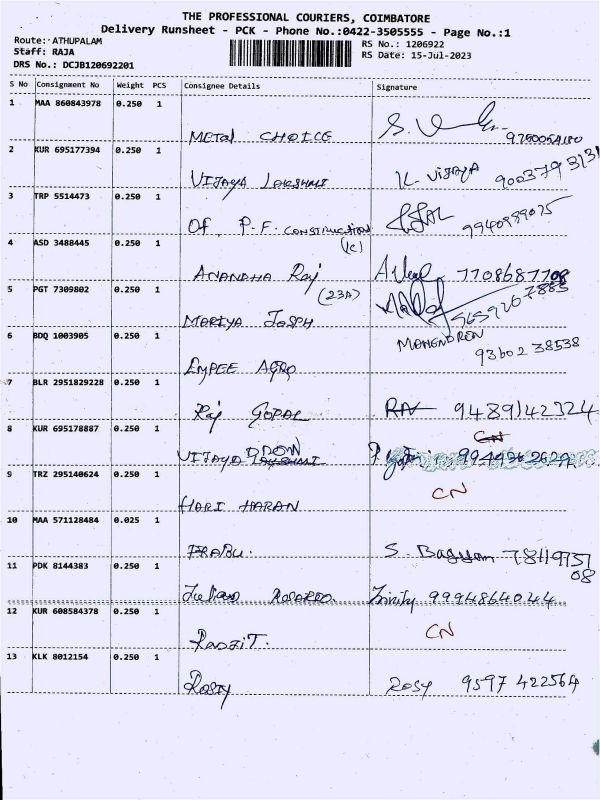 THE PROFESSIONAL COURIERS, COIMBATORE
Delivery Runsheet - PCK - Phone No.:0422-3505555 - Page No.:1
Route: ATHUPALAM
Staff: RAJA
DRS No.: DCJB120692201
RS No.: 1206922
RS Date: 15-Jul-2023
S No Consignment No Weight PCS Consignee Details Signature
1 MAA 860843978 0.250 1
METAL CHOICE
2 KUR 695177394 0.250 1
VIJAYA LAKSHMI K. VIJAYA
3 TRP 5514473 0.250 1
Of P.F. CONSTRUCTION 9940989025
(C)
4 ASD 3488445 0.250 1
ANANDHA Raj 7708687708
(23A)
5 PGT 7309802 0.250 1
MARIYA JOSPH
MAHENDREN
6 BDQ 1003905 0.250 1
93602 38538
EMPEE AGRO
7 BLR 2951829228 0.250 1
Raj GOPAL 9489142324
CN
8 KUR 695178887 0.250 1
VIJAYA
9 TRZ 295140624 0.250 1
CN
HARI HARAN
10 MAA 571128484 0.025 1
PRABU. S.
11 PDK 8144383 0.250 1
Trinity 9994864044
12 KUR 608584378 0.250 1
CN
13 KLK 8012154 0.250 1
Rosy Rosy 9597 422564